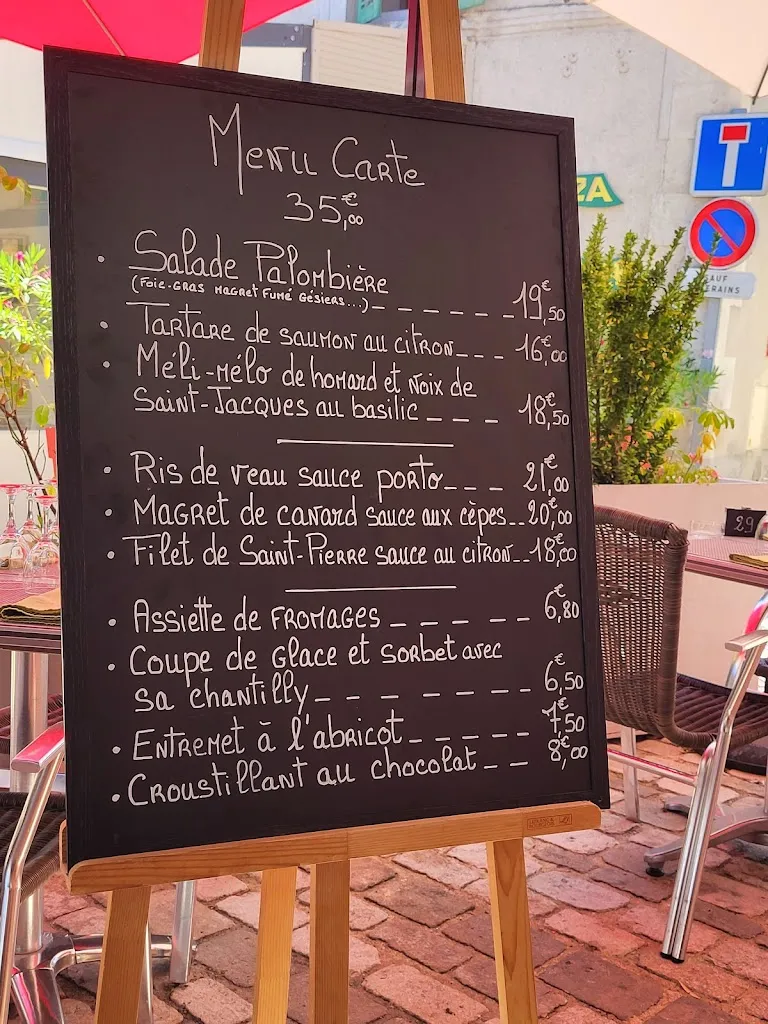 Menu Carte
35,00€
• Salade Palombière
(Foie-gras magret fumé gésiers...) _ _ _ _ _ _ 19,50€
• Tartare de saumon au citron _ _ _ 16,00€
• Méli-mélo de homard et noix de
Saint-Jacques au basilic _ _ _ 18,50€
• Ris de veau sauce porto _ _ _ 21,00€
• Magret de canard sauce aux cèpes _ _ 20,00€
• Filet de Saint-Pierre sauce au citron _ _ 18,00€
• Assiette de fromages _ _ _ _ _ 6,80€
• Coupe de glace et sorbet avec
sa chantilly _ _ _ _ _ _ _ 6,50€
• Entremet à l'abricot _ _ _ _ _ 7,50€
• Croustillant au chocolat _ _ 8,00€
ZA
29